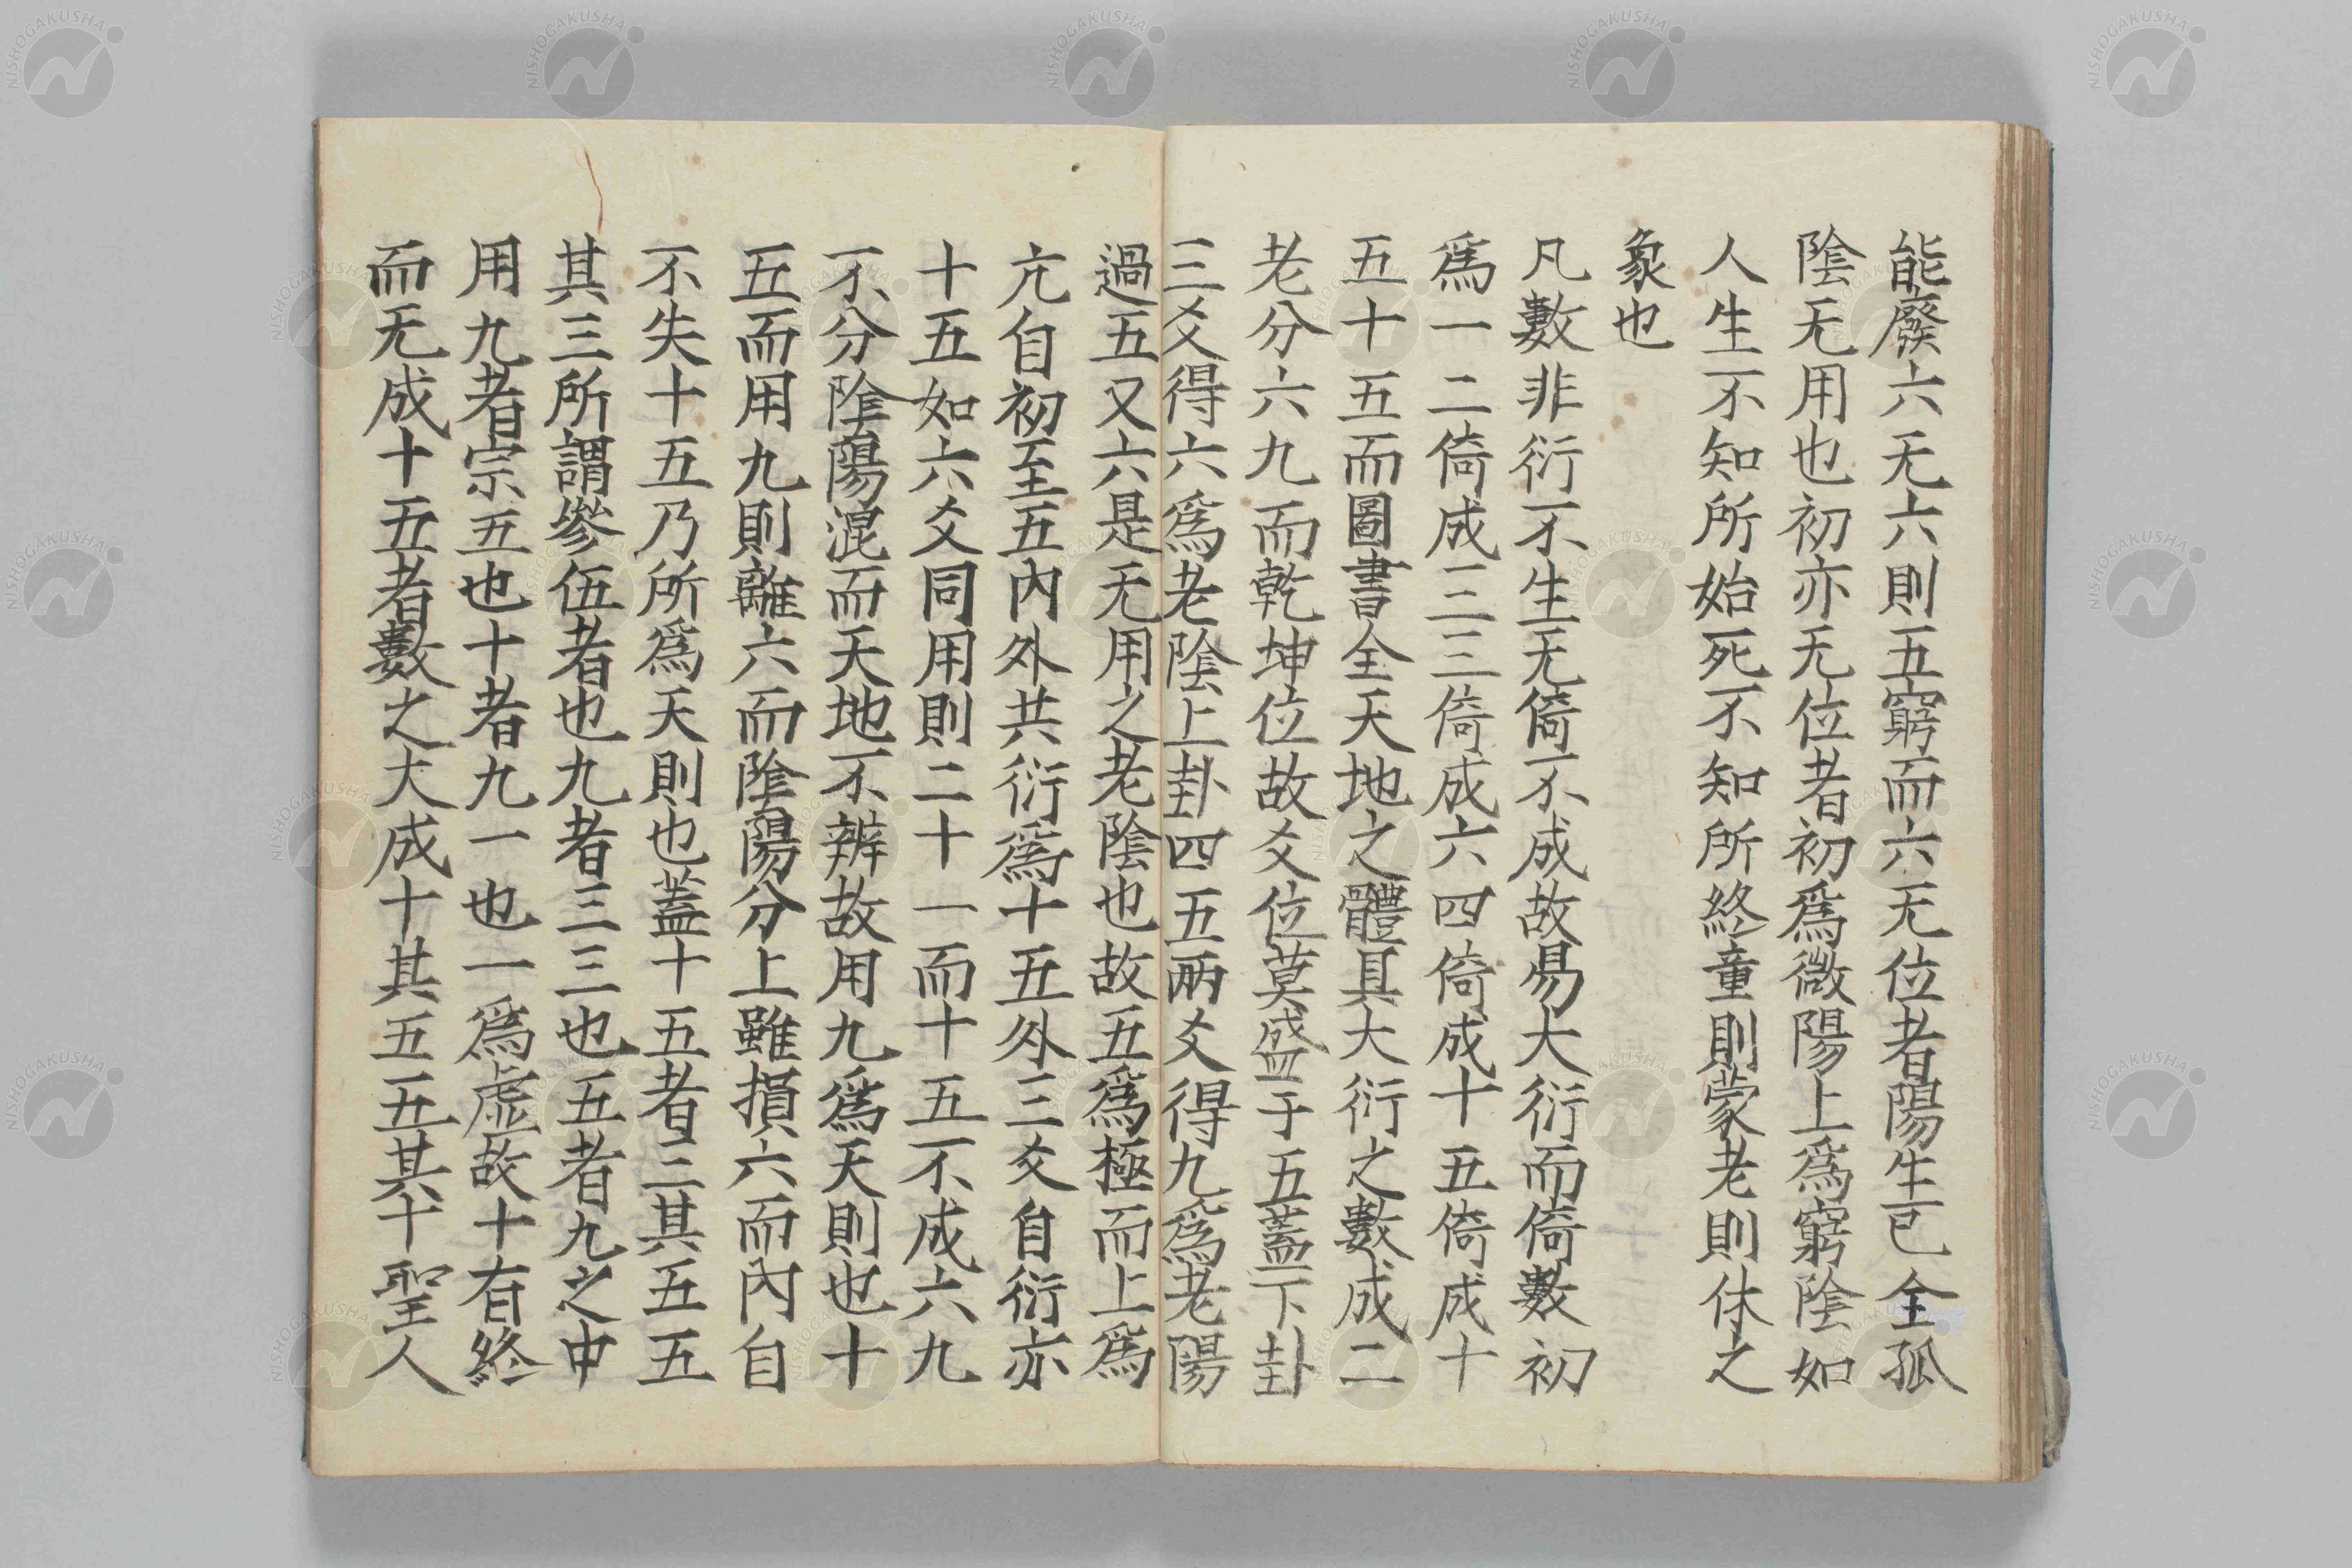 能廢六无六則五窮而六无位者陽生已全孤
陰无用也初亦无位者初爲微陽上爲窮陰如
人生不知所始死不知所終童則蒙老則休之
象也
凡數非衍不生无倚不成故易大衍而倚數初
爲一二倚成三三倚成六四倚成十五倚成十
五十五而圖書全天地之體具大衍之數成二
老分六九而乾坤位故爻位莫盛于五蓋下卦
三爻得六爲老陰上卦四五兩爻得九爲老陽
過五又六是无用之老陰也故五爲極而上爲
亢自初至五內外共衍爲十五外三爻自衍亦
十五如六爻同用則二十一而十五不成六九
不分陰陽混而天地不辨故用九爲天則也十
五而用九則離六而陰陽分上雖損六而內自
不失十五乃所爲天則也蓋十五者三其五五
其三所謂參伍者也九者三三也五者九之中
用九者宗五也十者九一也一爲虛故十有終
而无成十五者數之大成十其五五其十聖人
NISHOGAKUSHA